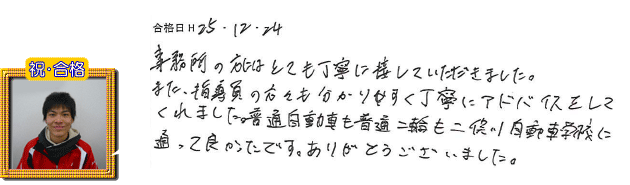 合格日 H 25・12・24
祝・合格
事務所の方はとても丁寧に接していただきました。
また、指導員の方々も分かりやすく丁寧にアドバイスをして
くれました。普通自動車も普通二輪も二俣川自動車学校に
通って良かったです。ありがとうございました。